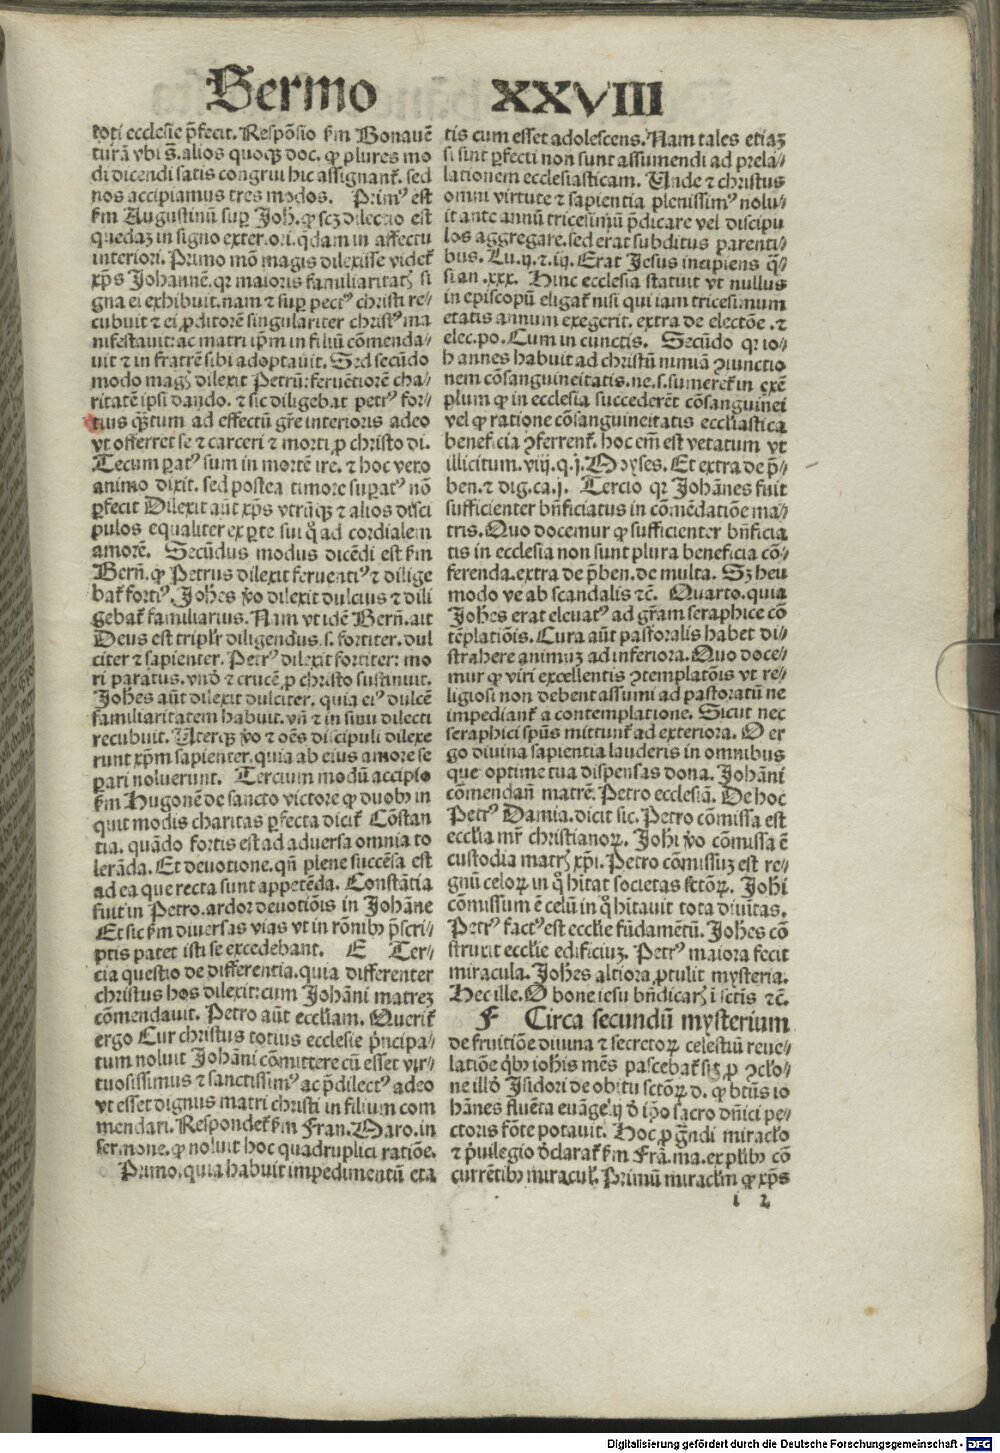 Sermo XXVIII
toti ecclesie p̄fecit. Respōsio ẜm Bonauē
turā vbi s̄. alios quoqꝫ doc. ꝙ plures mo
di dicendi satis congrui hic assignant̉. sed
nos accipiamus tres modos. Primꝰ est
ẜm Augustinū suꝑ Joh. ꝙ scꝫ dilectio est
quedaꝫ in signo exteriori. q̄dam in affectu
interiori. Primo mō magis dilexisse videt̉
xp̄s Johannē. qꝛ maioris familiaritatꝭ si
gna ei exhibuit. nam ⁊ suꝑ pectꝰ christi re⸗
cubuit ⁊ ei ꝓditorē singulariter christꝰ ma
nifestauit: ac matri ip̄m in filiū cōmenda⸗
uit ⁊ in fratrē sibi adoptauit. Sed secūdo
modo magꝭ dilexit Petrū: feruētiorē cha⸗
ritatē ipsi dando. ⁊ sic diligebat petrꝰ for⸗
tius qꝫtum ad effectū gr̄e interioris adeo
vt offerret se ⁊ carceri ⁊ morti ꝓ christo di.
Tecum ꝑatꝰ sum in mortē ire. ⁊ hoc vero
animo dixit. sed postea timore suꝑatꝰ nō
ꝑfecit Dilexit aūt xp̄s vtrūqꝫ ⁊ alios disci
pulos equaliter ex ꝑte sui q̊ ad cordialem
amorē. Secūdus modus dicēdi est ẜm
Bern̄. ꝙ Petrus dilexit feruentiꝰ ⁊ dilige
bat̉ fortiꝰ. Joh̄es v̊o dilexit dulcius ⁊ dili
gebat̉ familiarius. Nam vt idē Bern̄. ait
Deus est tripl̉r diligendus. s. fortiter. dul
citer ⁊ sapienter. Petrꝰ dilexit fortiter: mo
ri paratus. vnd̊ ⁊ crucē ꝓ christo sustinuit.
Joh̄es aūt dilexit dulciter. quia eiꝰ dulcē
familiaritatem habuit. vn̄ ⁊ in sinu dilecti
recubuit. Uterqꝫ v̊o ⁊ oēs discipuli dilexe
runt xp̄m sapienter. quia ab eius amore se
ꝑari noluerunt. Tercium modū accipio
ẜm Hugonē de sancto victore ꝙ duobꝫ in
quit modis charitas ꝑfecta dicit̉. Cōstan
tia. quādo fortis est ad aduersa omnia to
lerāda. Et deuotione. qn̄ plene succēsa est
ad ea que recta sunt appetēda. Constātia
fuit in Petro. ardor deuotiōis in Johāne
Et sic ẜm diuersas vias vt in rōnibꝫ p̄scri⸗
ptis patet isti se excedebant. E Ter⸗
cia questio de differentia. quia differenter
christus hos dilexit: cum Johāni matreꝫ
cōmendauit. Petro aūt eccl̉iam. Querit̉
ergo Cur christus totius ecclesie p̄ncipa⸗
tum noluit Johāni cōmittere cū esset vir⸗
tuosissimus ⁊ sanctissimꝰ ac p̄dilectꝰ adeo
vt esset dignus matri christi in filium com
mendari. Respondet̉ ẜm Fran. Maro. in
sermone. ꝙ noluit hoc quadruplici ratiōe.
Primo. quia habuit impedimentū eta
tis cum esset adolescens. Nam tales etiaꝫ
si sint ꝑfecti non sunt assumendi ad prela⸗
lationem ecclesiasticam. Unde ⁊ christus
omni virtute ⁊ sapientia plenissimꝰ nolu⸗
it ante annū tricesimū p̄dicare vel discipu
los aggregare. sed erat subditus parenti⸗
bus. Lu. ij. ⁊. iij. Erat Jesus incipiens q̄⸗
si an. xxx. Hinc ecclesia statuit vt nullus
in episcopū eligat̉ nisi qui iam tricesimum
etatis annum exegerit. extra de electōe. ⁊
elec. po. Cum in cunctis. Secūdo qꝛ io⸗
hannes habuit ad christū nimiā ꝯiunctio
nem cōsanguineitatis. ne. s. sumeret̉ in exē
plum ꝙ in ecclesia succederēt cōsanguinei
vel ꝙ ratione cōsanguineitatis eccl̉iastica
beneficia ꝯferrent̉. hoc em̄ est vetatum vt
illicitum. viij. q. j. Moyses. Et extra de p̄⸗
ben. ⁊ dig. ca. j. Tercio qꝛ Johānes fuit
sufficienter bn̄ficiatus in cōmēdatiōe ma⸗
tris. Quo docemur ꝙ sufficienter bn̄ficia
tis in ecclesia non sunt plura beneficia cō⸗
ferenda. extra de p̄ben. de multa. Sꝫ heu
modo ve ab scandalis ⁊c̄. Quarto. quia
Joh̄es erat eleuatꝰ ad gr̄am seraphice cō
tēplatiōis. Cura aūt pastoralis habet di⸗
strahere animuꝫ ad inferiora. Quo doce⸗
mur ꝙ viri excellentis ꝯtemplatōis vt re⸗
ligiosi non debent assumi ad pastoratū ne
impediant̉ a contemplatione. Sicut nec
seraphici sp̄us mittunt̉ ad exteriora. O er
go diuina sapientia lauderis in omnibus
que optime tua dispensas dona. Johāni
cōmendan̄ matrē. Petro ecclesiā. De hoc
Petrꝰ Damia. dicit sic. Petro cōmissa est
eccl̉ia mr̄ christianoꝝ. Joh̄i v̊o cōmissa ē
custodia matrꝭ xp̄i. Petro cōmissuꝫ est re⸗
gnū celoꝝ in q̊ h̄itat societas sc̄toꝝ. Joh̄i
cōmissum ē celū in q̊ h̄itauit tota diuītas.
Petrꝰ factꝰ est eccl̉ie fūdamētū. Joh̄es cō
struxit eccl̉ie edificiuꝫ. Petrꝰ maiora fecit
miracula. Joh̄es altiora ꝓtulit mysteria.
Hec ille. O bone iesu bn̄dicarꝭ i sc̄tis ⁊c̄.
F Circa secundū mysterium
de fruitiōe diuina ⁊ secretoꝝ celestiū reue⸗
latiōe q̇bꝫ ioh̄is mēs pascebat̉
ne illd̊ Isidori de obitu sctōꝝ d. ꝙ bt̄us io
hānes fluēta euāgelij d̊ ip̄o sacro dn̄ici pe⸗
ctoris fōte potauit. Hoc ꝓ grandi miracl̉o
⁊ p̄uilegio d̊clarat̉ ẜm Frā. ma. ex pl̉ibꝫ cō
currētibꝫ miracul̉. Primū miracl̉m ꝙ xp̄s
l 2
Digitalisierung gefördert durch die Deutsche Forschungsgemeinschaft - DFG